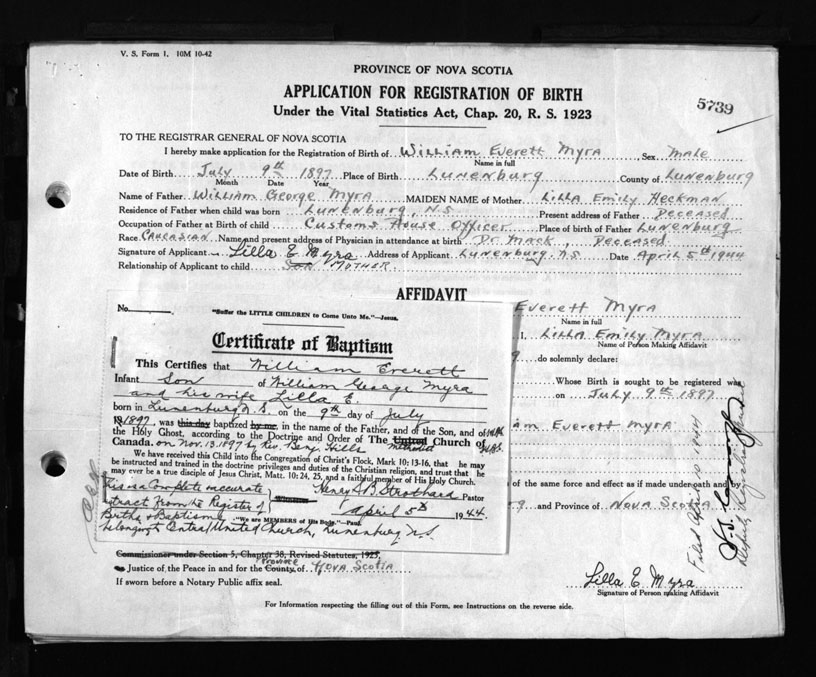 V. S. Form 1. 10M 10-42
PROVINCE OF NOVA SCOTIA
APPLICATION FOR REGISTRATION OF BIRTH
5739
Under the Vital Statistics Act, Chap. 20, R. S. 1923
TO THE REGISTRAR GENERAL OF NOVA SCOTIA
I hereby make application for the Registration of Birth of William Everett Myra Sex Male
Name in full
Date of Birth July 9th 1897 Place of Birth Lunenburg County of Lunenburg
Month Date Year
Name of Father William George Myra MAIDEN NAME of Mother Lilla Emily Heckman
Residence of Father when child was born Lunenburg, N.S Present address of Father Deceased
Occupation of Father at Birth of child Customs House Officer Place of birth of Father Lunenburg
Race Caucasian Name and present address of Physician in attendance at birth Dr Mack, Deceased
Signature of Applicant Lilla E Myra Address of Applicant Lunenburg. N.S Date April 5th 1944
Relationship of Applicant to child Son Mother.
AFFIDAVIT
No.
"Suffer the LITTLE CHILDREN to Come Unto Me."—Jesus.
Certificate of Baptism
This Certifies that William Everett
Infant Son of William George Myra
and his wife Lilla E.
born in Lunenburg N.S. on the 9th day of July
1897, was this day baptized by me, in the name of the Father, and of the Son, and of
the Holy Ghost, according to the Doctrine and Order of The United Church of
Methodist
Canada. on Nov. 13. 1897 by Rev. Benj. Hills
We have received this Child into the Congregation of Christ's Flock, Mark 10; 13-16, that he may
be instructed and trained in the doctrine privileges and duties of the Christian religion, and trust that he
may ever be a true disciple of Jesus Christ, Matt. 10: 24, 25, and a faithful member of His Holy Church.
This is a Complete & accurate
Henry B Strothard Pastor
extract from the Register of
April 5th 1944.
Births & Baptisms
"We are MEMBERS of His Body."—Paul.
belonging to Central United Church, Lunenburg N.S.
Everett Myra
Name in full
I, Lilla Emily Myra
Name of Person Making Affidavit
do solemnly declare:
Whose Birth is sought to be registered was
on July 9th 1897
am Everett Myra
of the same force and effect as if made under oath and
g and Province of Nova Scotia
Filed April 10 1944
Commissioner under Section 5, Chapter 38, Revised Statutes, 1923,
Province
Justice of the Peace in and for the County of Nova Scotia
If sworn before a Notary Public affix seal.
Lilla E Myra
Signature of Person making Affidavit
For Information respecting the filling out of this Form, see Instructions on the reverse side.